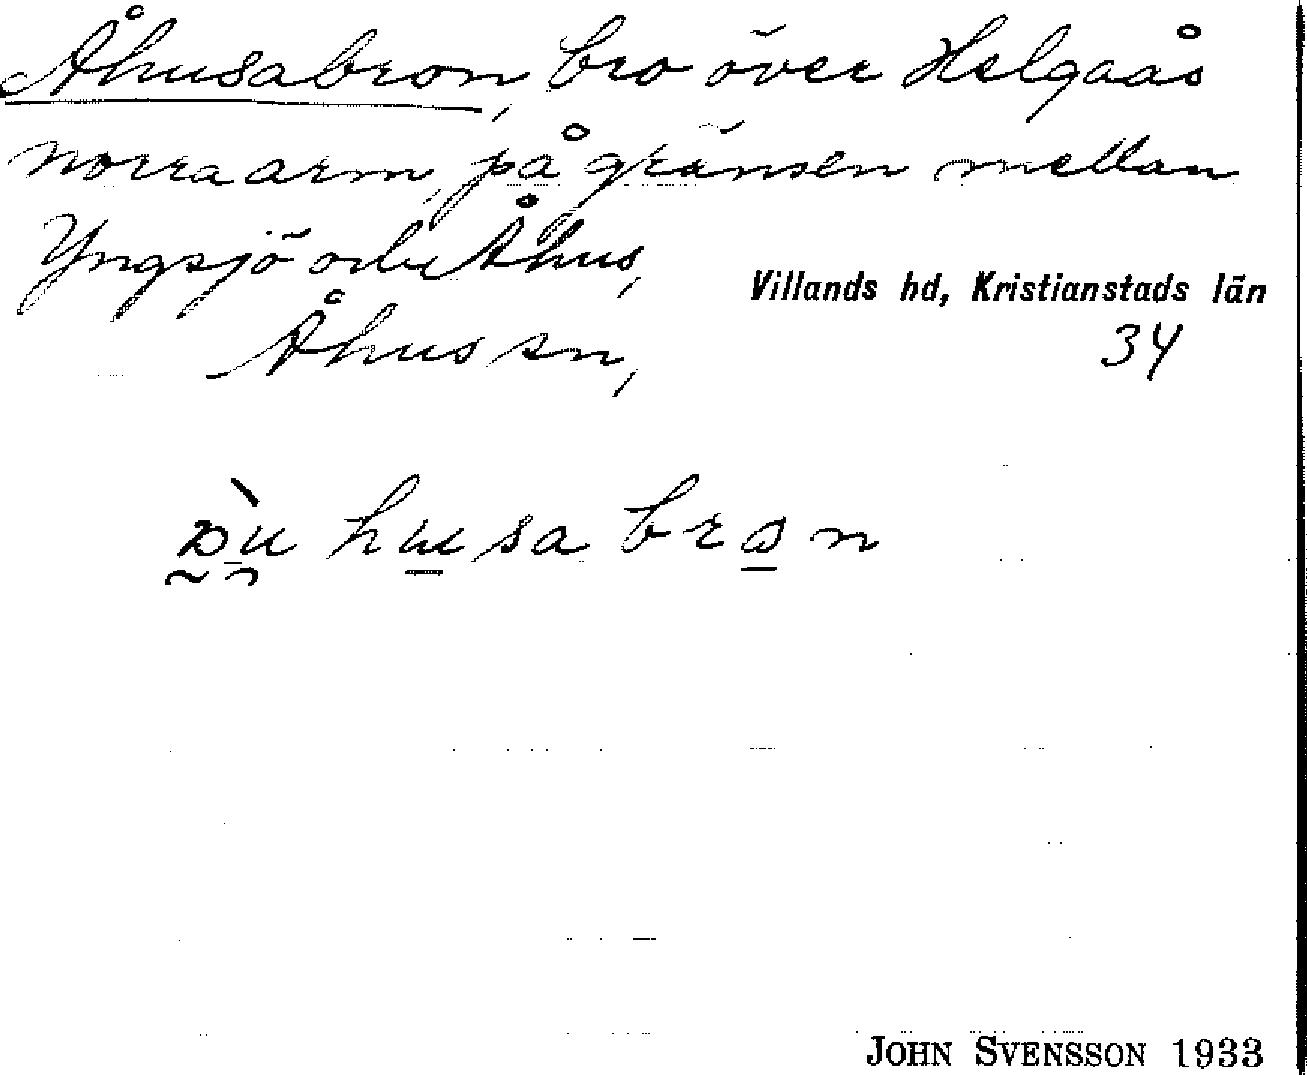 Åhusabron, bro över Helgaås
norra arm, på gränsen mellan
Yngsjö och Åhus,
Villands hd, Kristianstads län
Åhus sn,
34
husabron
JOHN SVENSSON 1933